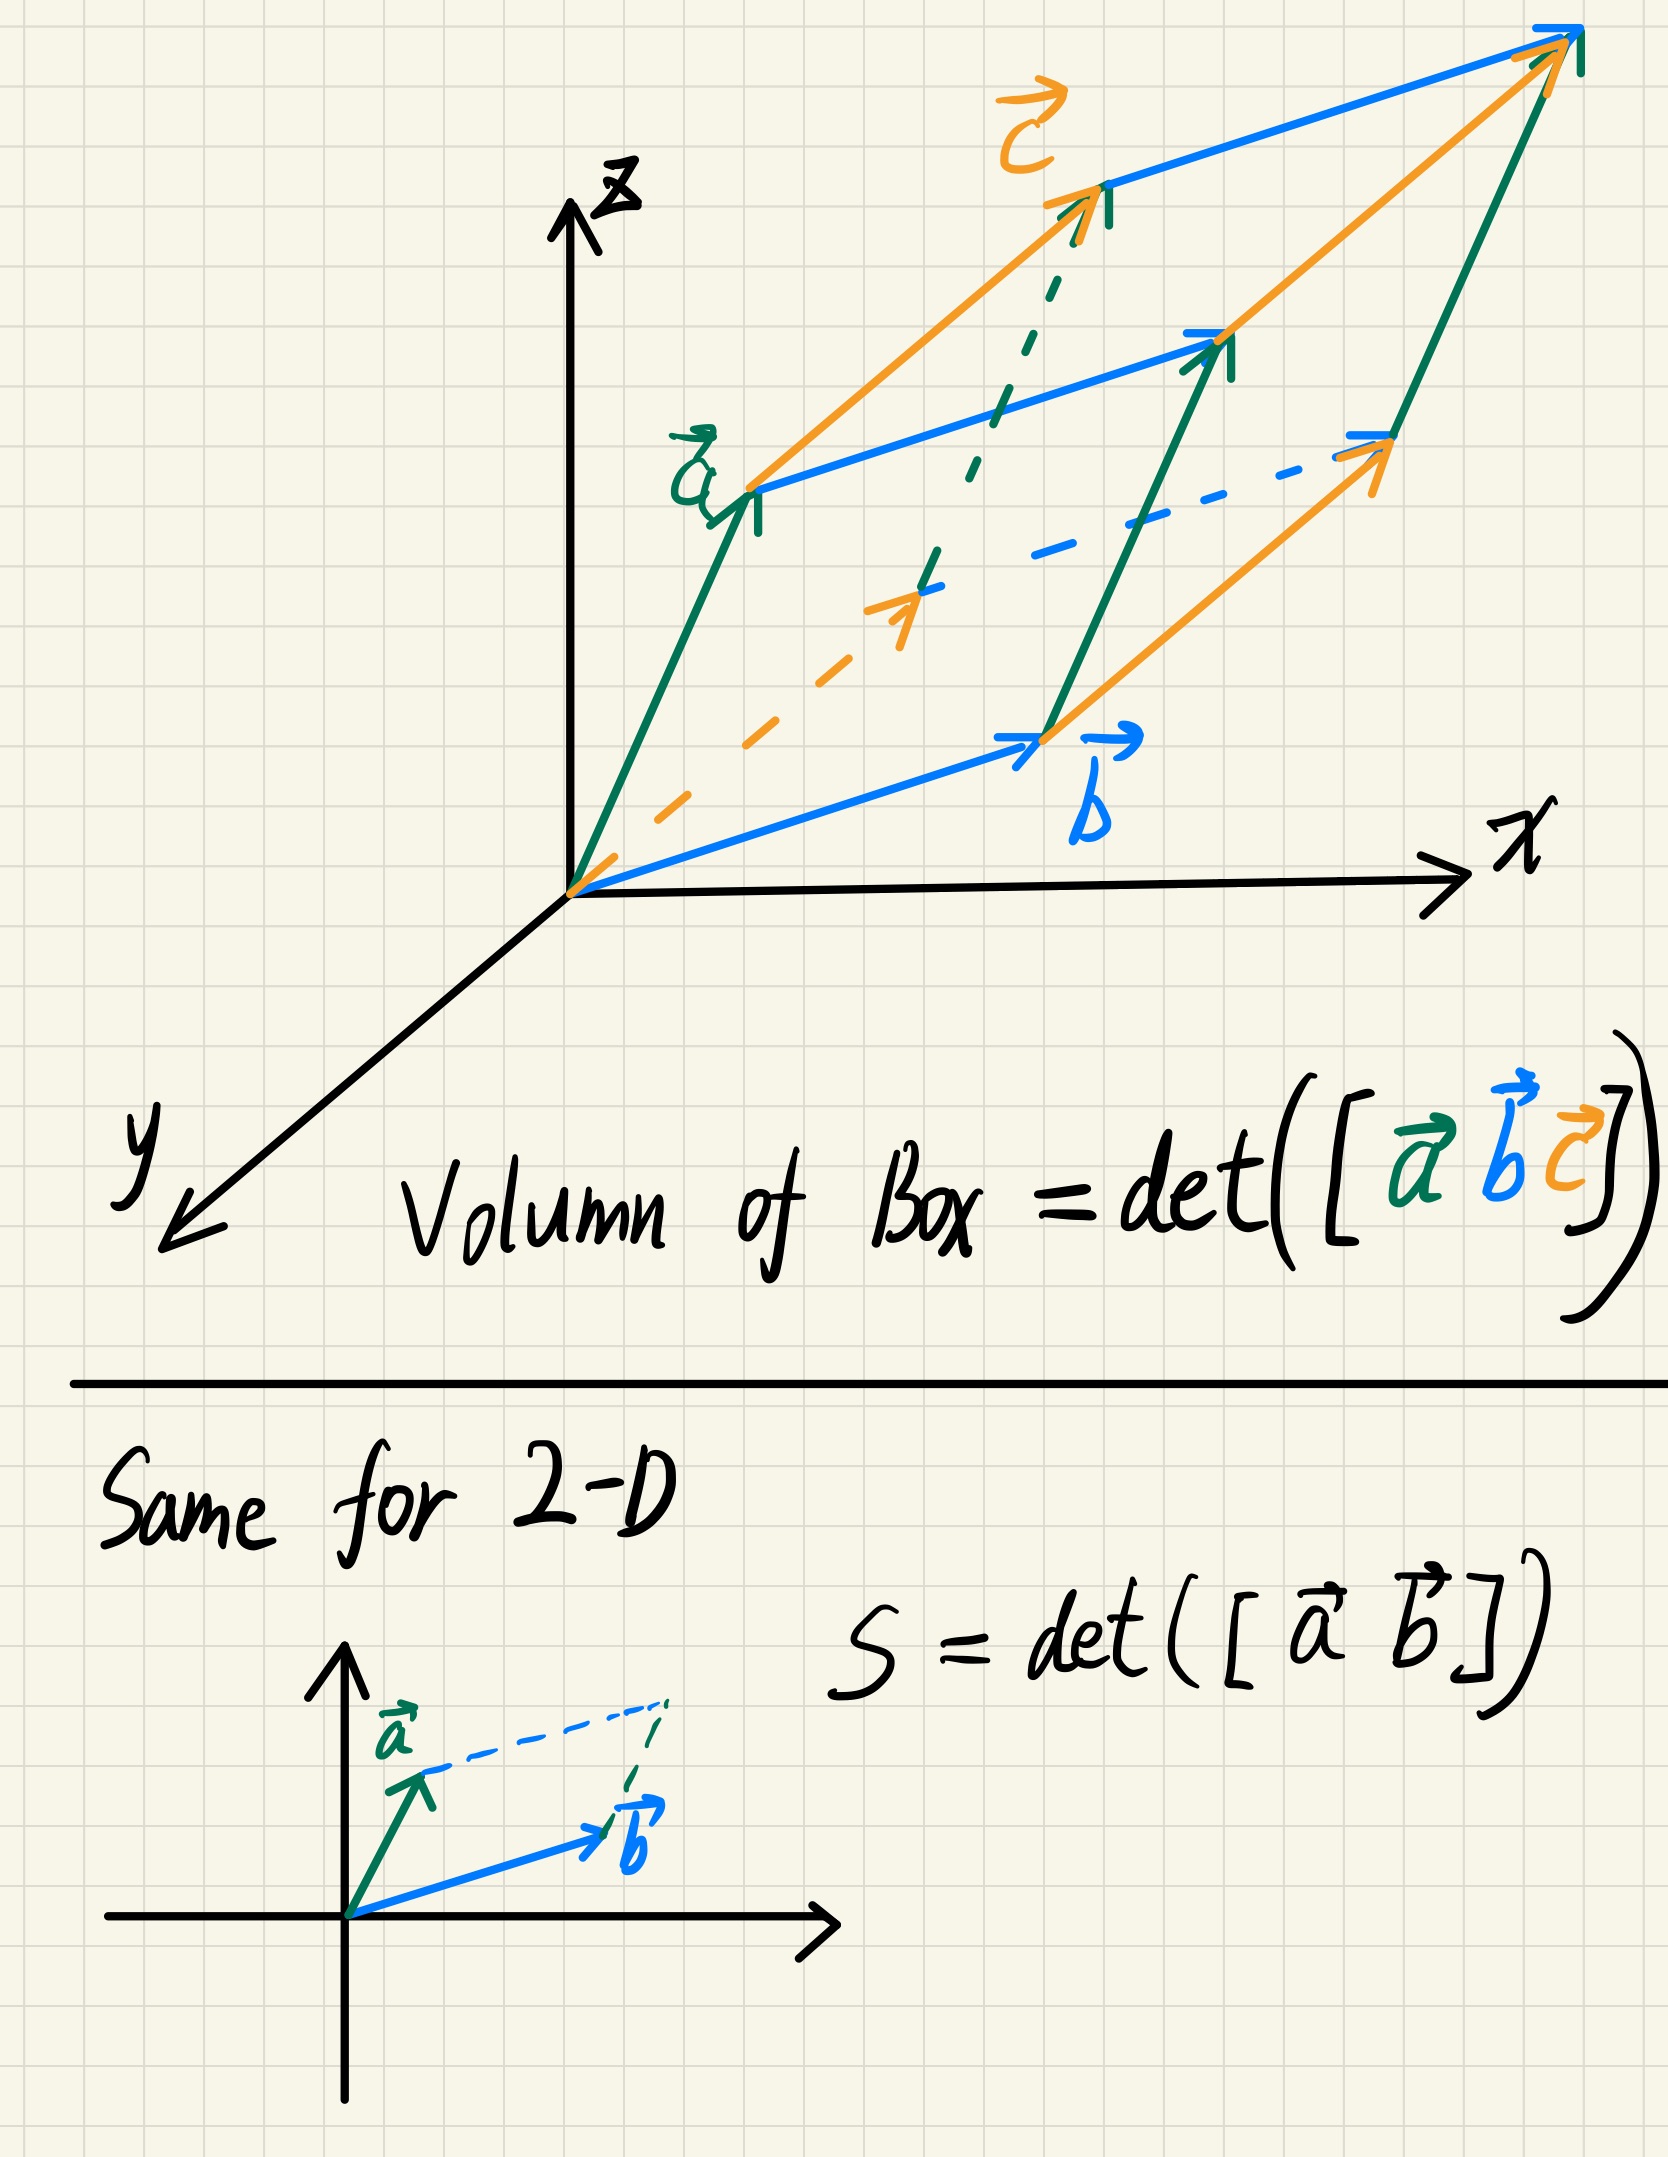 c⃗
z
a⃗
b⃗
x
y
Volumn of Box = det([a⃗ b⃗ c⃗])
Same for 2-D
S = det([a⃗ b⃗])
a⃗
b⃗